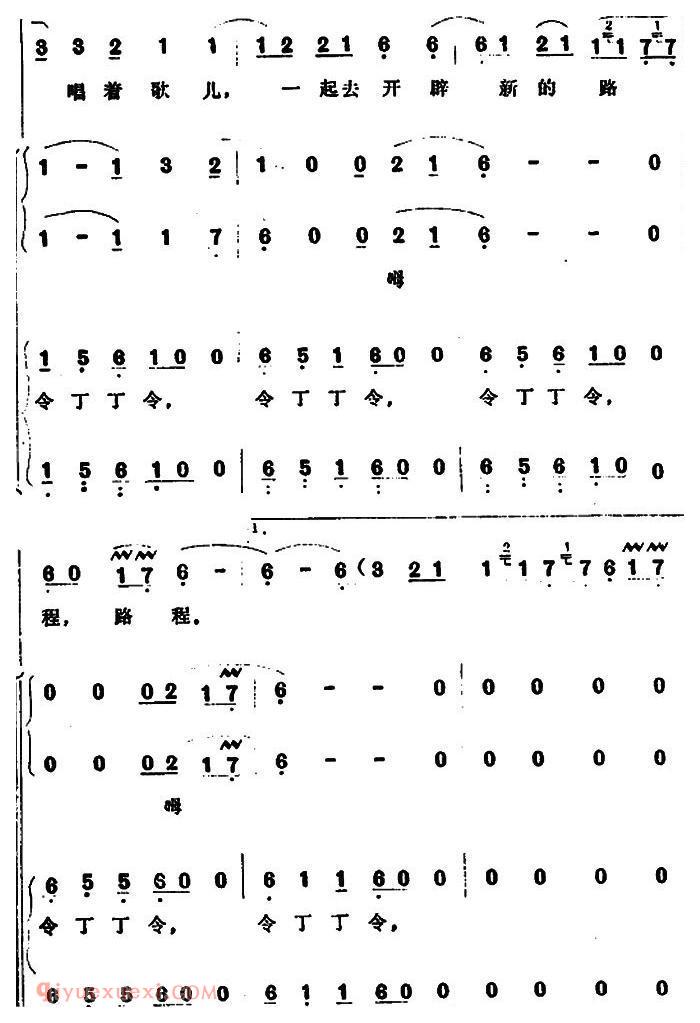 3 3 2 1 1 | 1 2 2 1 6 6 | 6 1 2 1 1 1 7 7
唱着歌儿，一起去开辟新的路
1 - 1 3 2 | 1 0 0 2 1 6 - - 0
1 - 1 1 7 | 6 0 0 2 1 6 - - 0
呣
1 5 6 1 0 0 | 6 5 1 6 0 0 6 5 6 1 0 0
令丁丁令，令丁丁令，令丁丁令，
1 5 6 1 0 0 | 6 5 1 6 0 0 | 6 5 6 1 0 0
1.
6 0 1 7 6 - | 6 - 6 (3 2 1 1 2 1 7 1 7 6 1 7
程，路程。
0 0 0 2 1 7 | 6 - - 0 | 0 0 0 0
0 0 0 2 1 7 | 6 - - 0 0 0 0 0
呣
6 5 5 6 0 0 | 6 1 1 6 0 0 | 0 0 0 0
令丁丁令，令丁丁令，
6 5 5 6 0 0 6 1 1 6 0 0 0 0 0 0
qiyuexuexi.COM